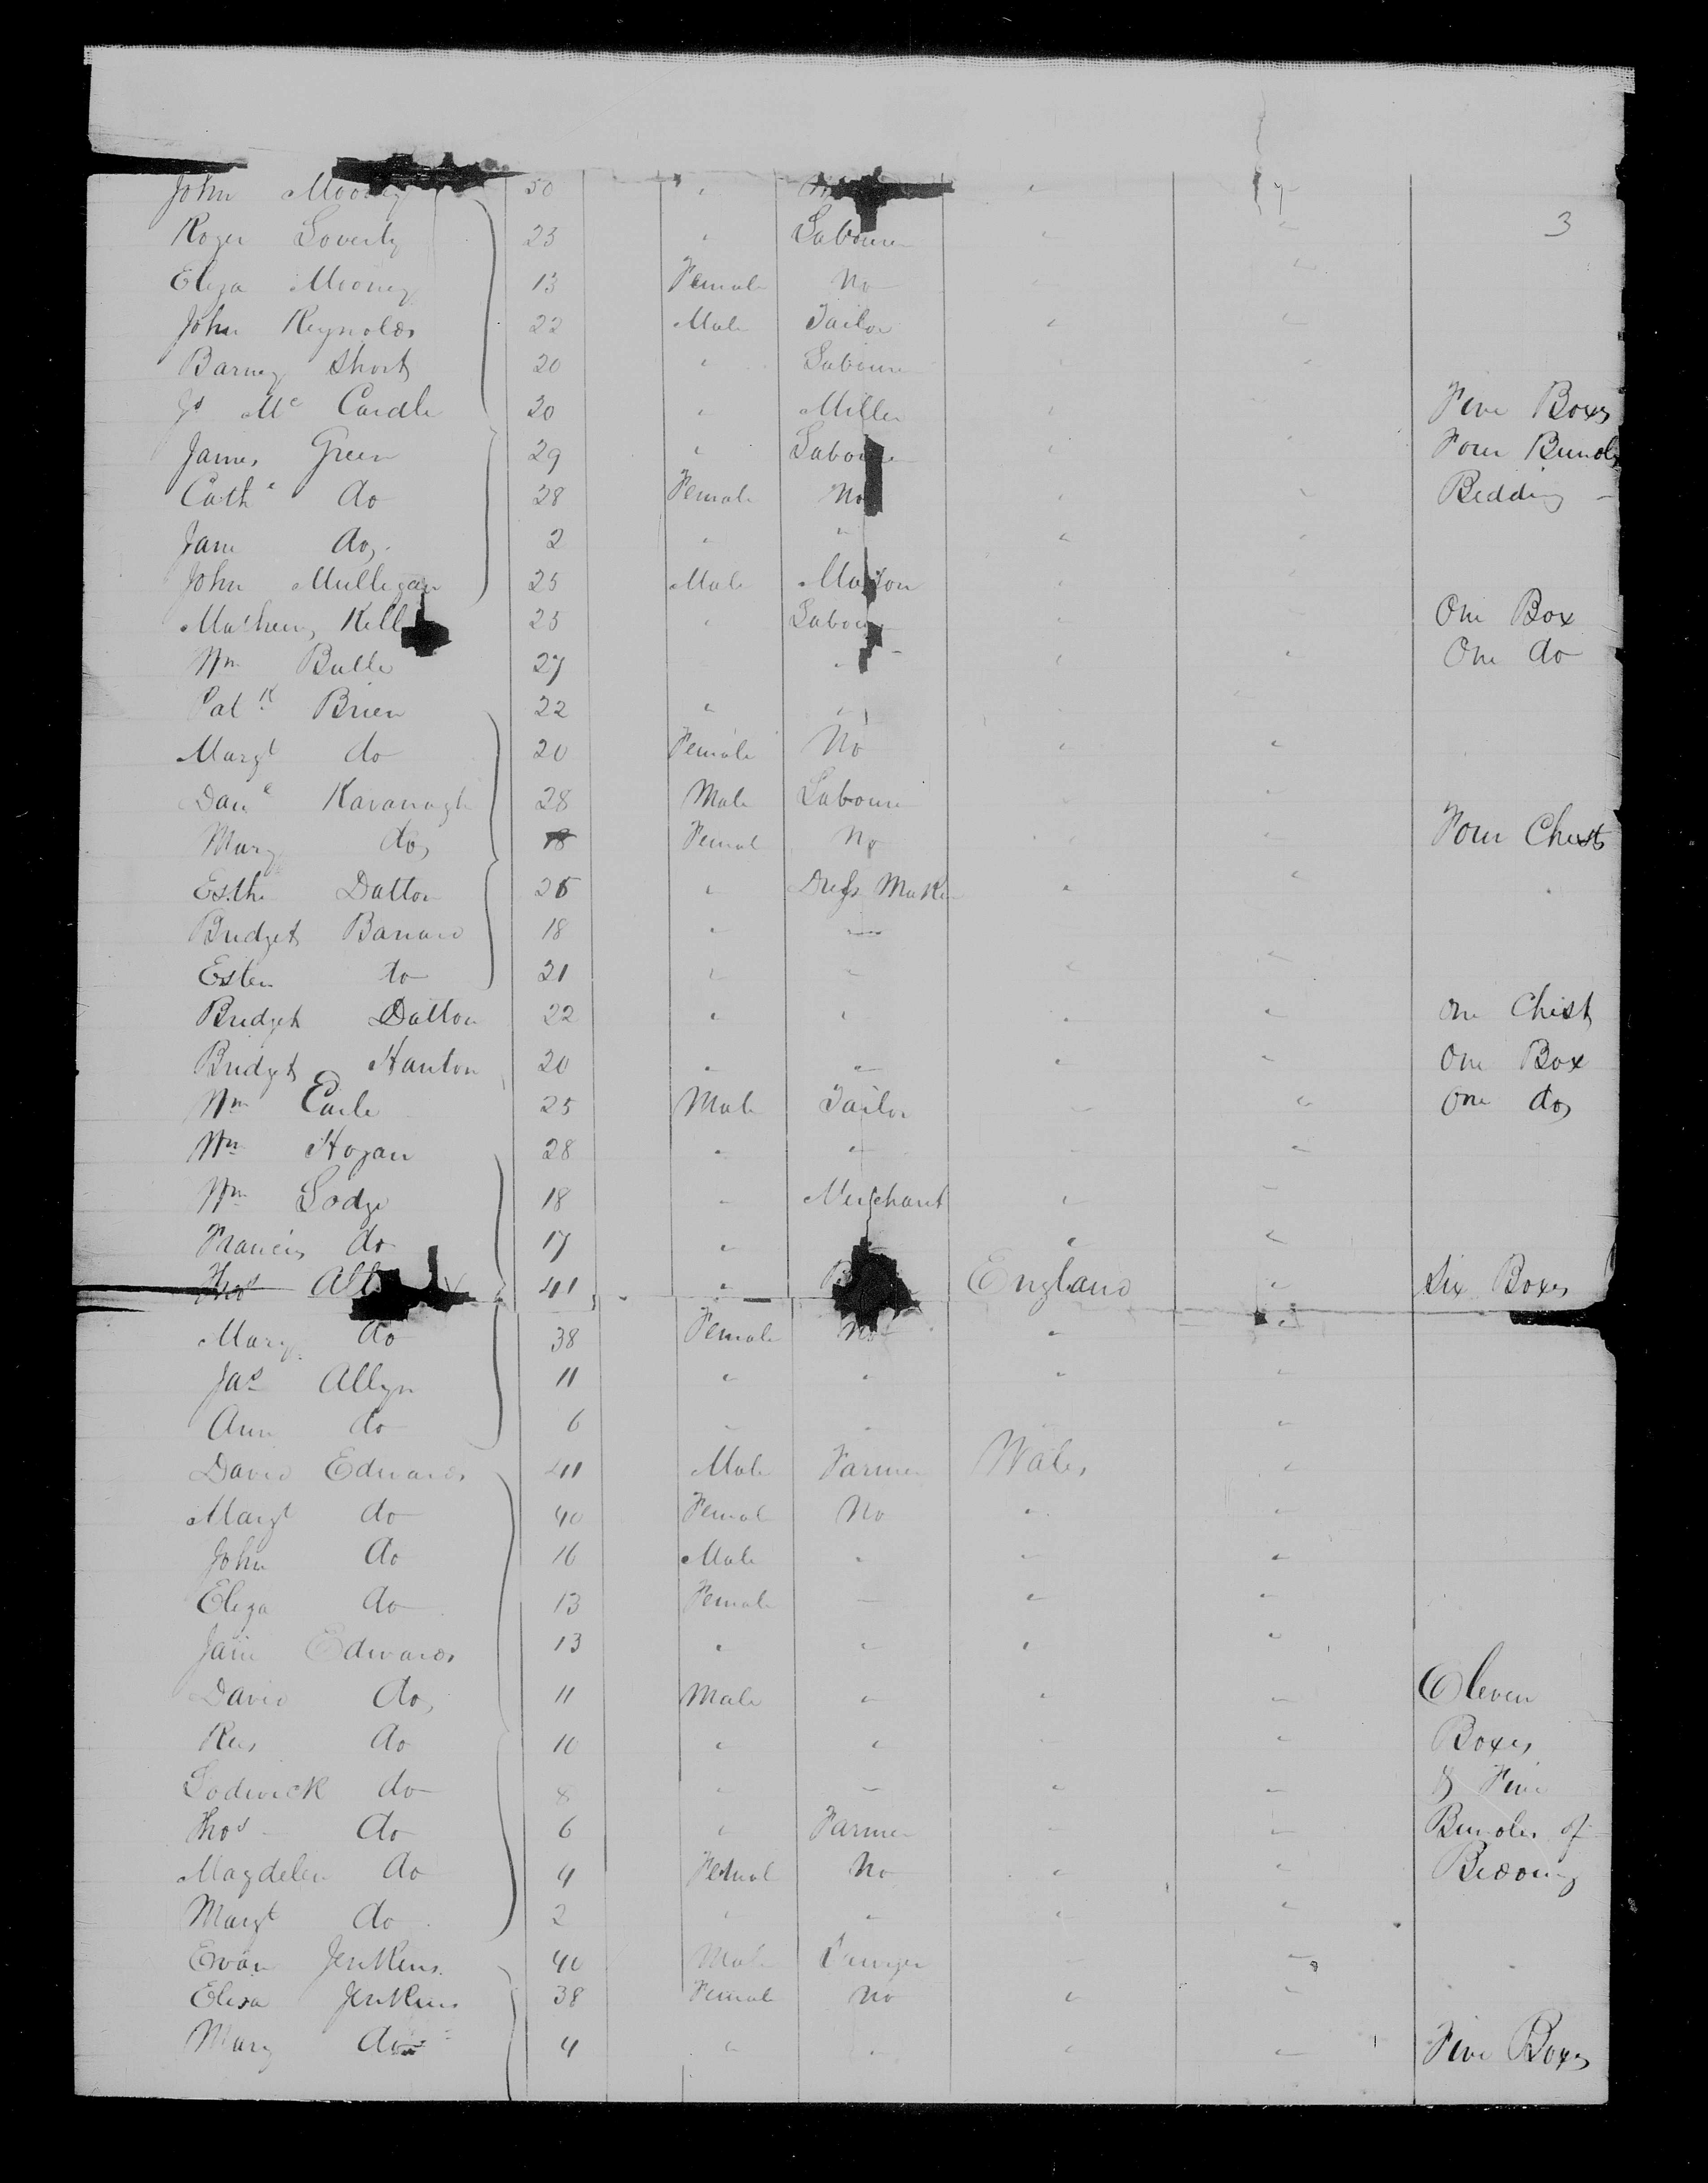 John Mooney 50 "
3
Roger Loverty 23 " Labourer
Eliza Mooney 13 Female No
John Reynolds 22 Male Tailor
Barney Short 20 " Labourer
Js Mc Cardle 20 " Miller Five Boxes
James Green 29 " Labourer Four Bundles
Cathe do 28 Female No Bedding
Jane do 2 " "
John Mulligan 25 Male Mason
Mathew Kell 25 " Labourer One Box
Wm Butler 27 " One do
Patk Brien 22 " "
Margt do 20 Female No
Danl Kavanagh 28 Male Labourer
Mary do 18 Female No Four Chests
Esther Dalton 25 " Dress Maker
Bridget Barnard 18 " "
Ester do 21 " "
Bridget Dalton 22 " " One Chest
Bridget Hanlon 20 " " One Box
Wm Earle 25 Male Tailor One do
Wm Hogan 28 " "
Wm Lodge 18 " Merchant
Francis do 17 "
Thos All 41 " England " Six Boxes
Mary do 38 Female No " "
Jas Allyn 11 " " " "
Ann do 6 " " " "
David Edwards 41 Male Farmer Wales "
Margt do 40 Female No " "
John do 16 Male " " "
Eliza do 13 Female " " "
Jane Edwards 13 " " " "
David do 11 Male " " " Eleven
Rees do 10 " " " " Boxes
Lodwick do 8 " " " " & Five
Thos do 6 " Farmer " " Bundles of
Magdelen do 4 Female No " " Bedding
Margt do 2 " " " "
Evan Jenkins 40 Male " "
Eliza Jenkins 38 Female No " "
Mary do 4 " " " " Five Boxes